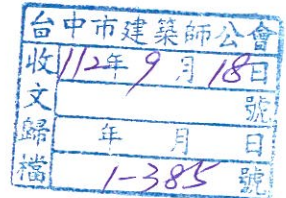 台中市建築師公會
收文歸檔
112年9月18日
號
年月日
1-385號